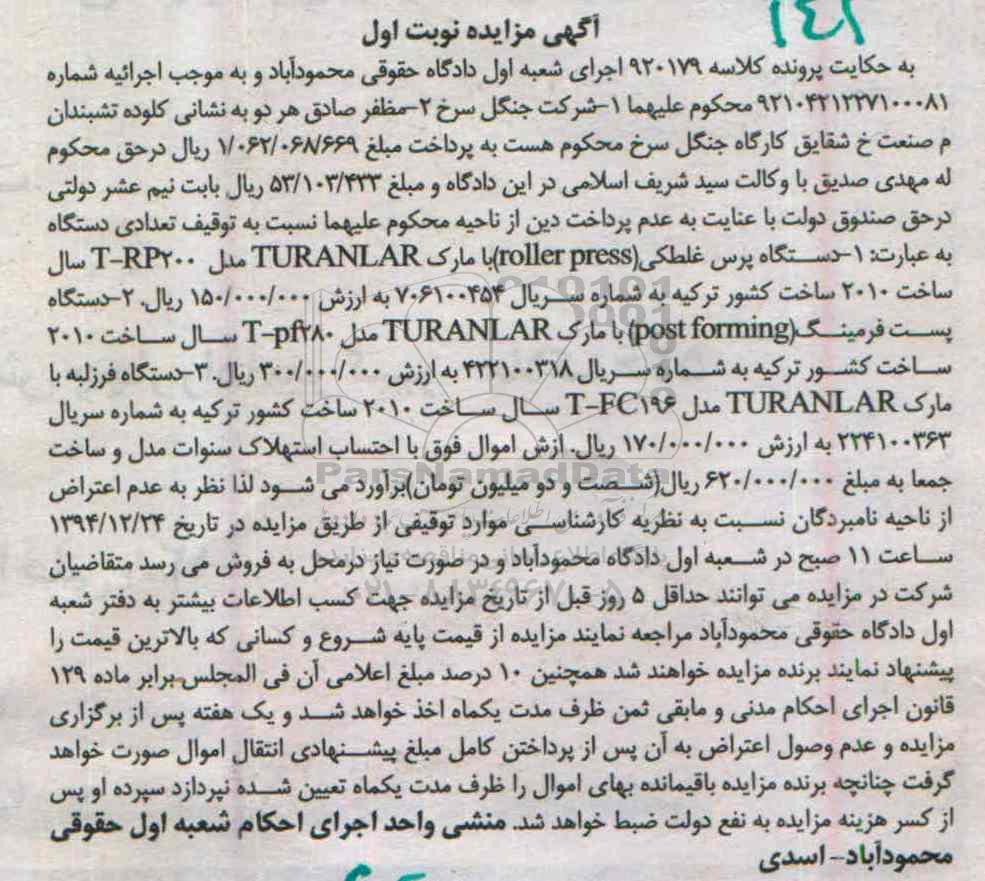 ۱۴۱
آگهی مزایده نوبت اول
به حکایت پرونده کلاسه ۹۲۰۱۷۹ اجرای شعبه اول دادگاه حقوقی محمودآباد و به موجب اجرائیه شماره
۹۲۱۰۴۲۱۲۲۷۱۰۰۰۸۱ محکوم علیهما ۱-شرکت جنگل سرخ ۲-مظفر صادق هر دو به نشانی کلوده تشبندان
م صنعت خ شقایق کارگاه جنگل سرخ محکوم هست به پرداخت مبلغ ۱/۰۶۲/۰۶۸/۶۶۹ ریال درحق محکوم
له مهدی صدیق با وکالت سید شریف اسلامی در این دادگاه و مبلغ ۵۳/۱۰۳/۴۳۳ ریال بابت نیم عشر دولتی
درحق صندوق دولت با عنایت به عدم پرداخت دین از ناحیه محکوم علیهما نسبت به توقیف تعدادی دستگاه
به عبارت: ۱-دستگاه پرس غلطکی(roller press)با مارک TURANLAR مدل T-RP۲۰۰ سال
ساخت ۲۰۱۰ ساخت کشور ترکیه به شماره سریال ۷۰۶۱۰۰۴۵۴ به ارزش ۱۵۰/۰۰۰/۰۰۰ ریال. ۲-دستگاه
پست فرمینگ(post forming) با مارک TURANLAR مدل T-pf۲۸۰ سال ساخت ۲۰۱۰
ساخت کشور ترکیه به شماره سریال ۴۲۲۱۰۰۳۱۸ به ارزش ۳۰۰/۰۰۰/۰۰۰ ریال. ۳-دستگاه فرزلبه با
مارک TURANLAR مدل T-FC۱۹۶ سال ساخت ۲۰۱۰ ساخت کشور ترکیه به شماره سریال
۲۲۴۱۰۰۳۶۳ به ارزش ۱۷۰/۰۰۰/۰۰۰ ریال. ازش اموال فوق با احتساب استهلاک سنوات مدل و ساخت
جمعا به مبلغ ۶۲۰/۰۰۰/۰۰۰ ریال(شصت و دو میلیون تومان)برآورد می شود لذا نظر به عدم اعتراض
از ناحیه نامبردگان نسبت به نظریه کارشناسی موارد توقیفی از طریق مزایده در تاریخ ۱۳۹۴/۱۲/۲۴
ساعت ۱۱ صبح در شعبه اول دادگاه محمودآباد و در صورت نیاز درمحل به فروش می رسد متقاضیان
شرکت در مزایده می توانند حداقل ۵ روز قبل از تاریخ مزایده جهت کسب اطلاعات بیشتر به دفتر شعبه
اول دادگاه حقوقی محمودآباد مراجعه نمایند مزایده از قیمت پایه شروع و کسانی که بالاترین قیمت را
پیشنهاد نمایند برنده مزایده خواهند شد همچنین ۱۰ درصد مبلغ اعلامی آن فی المجلس.برابر ماده ۱۲۹
قانون اجرای احکام مدنی و مابقی ثمن ظرف مدت یکماه اخذ خواهد شد و یک هفته پس از برگزاری
مزایده و عدم وصول اعتراض به آن پس از پرداختن کامل مبلغ پیشنهادی انتقال اموال صورت خواهد
گرفت چنانچه برنده مزایده باقیمانده بهای اموال را ظرف مدت یکماه تعیین شده نپردازد سپرده او پس
از کسر هزینه مزایده به نفع دولت ضبط خواهد شد. منشی واحد اجرای احکام شعبه اول حقوقی
محمودآباد- اسدی
ParsNamadData